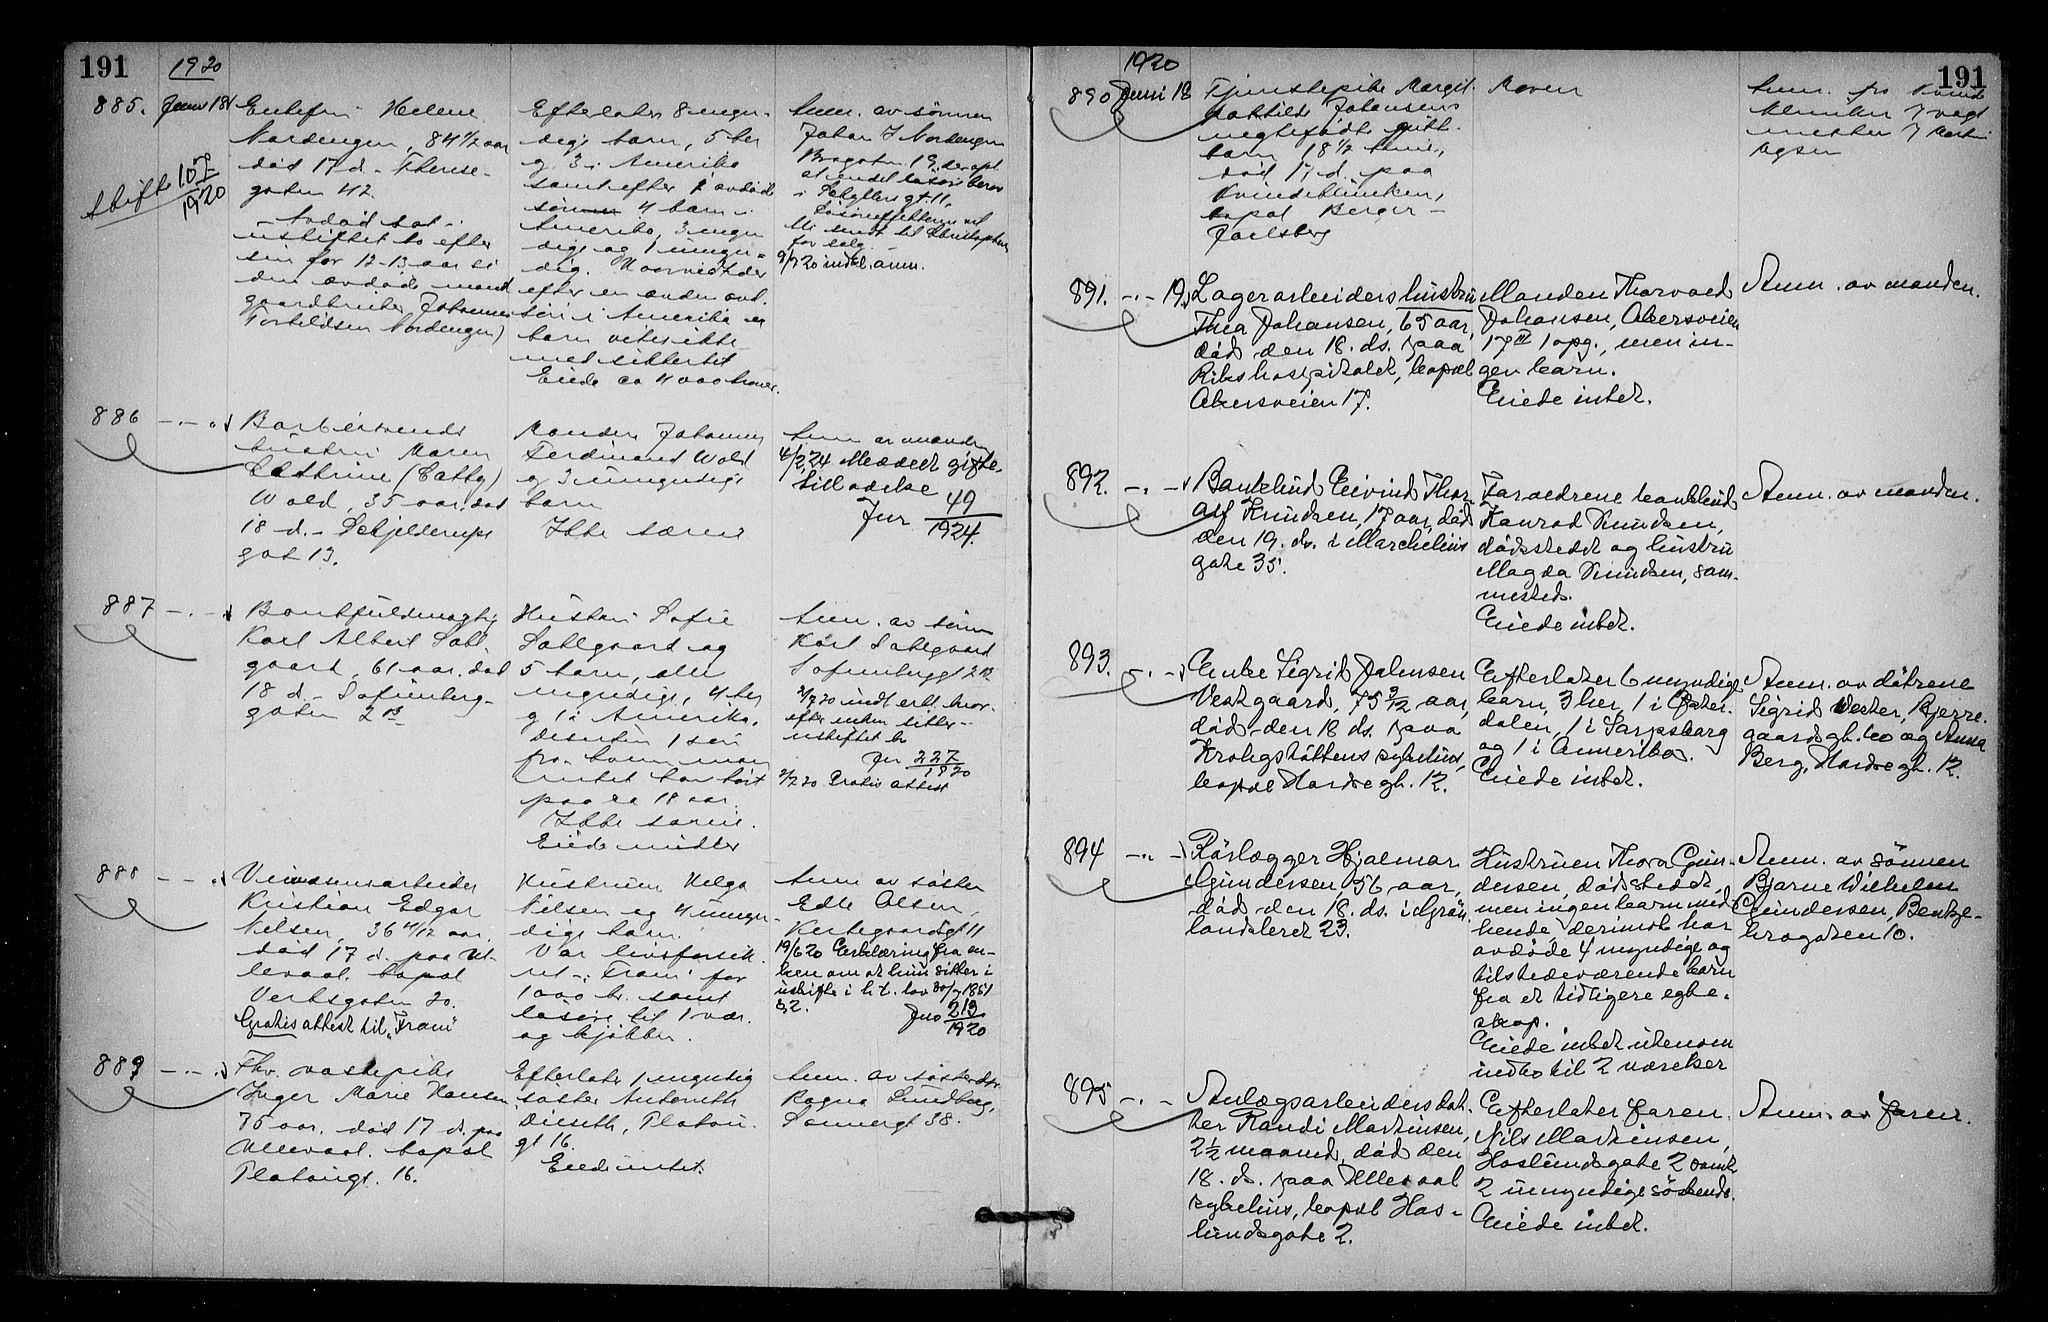 191
1920
885. Juni 18
Enkefru Helene
Nordengen, 84 1/2 aar
död 17 d. Therese-
gaten 42.
Avdöd sat i
uskiftet bo efter
sin for 12-13 aar si
den avdöde mand
gaardbruker Johannes
Torkildsen Nordengen)
Skifte 107/1920
Efterlater 8 myn-
dige barn, 5 her
og 3 i Amerika
samt efter 1 avdöd
sön 4 barn i
Amerika, 3 myn
dige og 1 umyn-
dig. Hvorvidt der
efter en anden avd.
sön i Amerika er
barn vites ikke
med sikkerhet
Eiede ca 4000 kroner.
Anm. av sönnen
Johan J Nordengen
Brogaten 19, der opl.
at endel lösöre beror
i gt. 11.
Lösöreffekterne vil
bli sendt til
for salg.
9/7 20 indk. anm.
886 -"-
Barbersvends
hustru Maren
Cathrine (Catty)
Wold, 35 aar, död
18 d. Schjelderups
gat 13.
Manden Johannes
Ferdinand Wold
og 3 umyndige
barn
Ikke særeie
Anm av manden
4/2 24 Meddelt gifte-
tilladelse
Jnr 49/1924.
887 -"-
Bankfuldmægtig
Karl Albert Dahl-
gaard, 61 aar, död
18 d. Sofienberg-
gaten 2 B
Hustru Sofie
Dahlgaard og
5 barn, alle
myndige, 4 her
og 1 i Amerika,
desuten 1 sön
fra hvem man
intet har hört
paa ca 18 aar.
Ikke særeie.
Eiede midler
Anm. av sönn
Karl Dahlgaard
Sofienberggt 2 B
indt. erkl. hvor-
efter enken sitter i
uskiftet bo
Jnr 227/1920
2/7 20 Gratis attest
888 -"-
Veivæsensarbeider
Kristian Edgar
Nilsen, 36 4/12 aar
död 17 d. paa Ul-
levaal. bopæl
Verksgaten 20.
Gratis attest til "Fram"
Hustruen Helga
Nilsen og 4 umyn-
dige barn.
Var livsforsik-
ret i "Fram" for
1000 kr. samt
lösöre til 1 vær.
og kjökken.
Anm av söster
Edle Olsen,
Kirkegaardsgt 11
19/6 20 Erklæring fra en-
ken om at hun sitter i
uskifte i h. t. lov 30/7 1851
§ 2.
Jno 213/1920
889 -"-
Fhv. vaskepike
Inger Marie Hansen
75 aar, död 17 d. paa
Ullevaal. bopæl
Platougt. 16.
Efterlater 1 myndig
söster Antonette
Diseth, Platou-
gt 16
Eiede intet.
Anm. av sösterdtr.
Ragna Lundberg,
Sannergt 38.
191
1920
890 Juni 18
Tjenestepike Margit
Johansens
uegtefödte gutt-
barn, 18 1/2 time,
död 17 d. paa
Kvindeklinikken,
bopæl Berger
Jarlsberg
Moren
Anm. fra Kvinde
klinikken v vagt
mester
891. -"- 19.
Lagerarbeiders hustru
Thea Johansen, 65 aar,
död den 18. ds. paa
Rikshospitalet, bopæl
Akersveien 17.
Manden Thorvald
Johansen, Akersveien
17 III 1 opg., men in-
gen barn.
Eiede intet.
Anm. av manden.
892. -"-
Bankbud Eivind Thor-
alf Knudsen, 17 aar, död
den 19. ds. i Marcelius
gate 35.
Forældrene bankbud
Konrad Knudsen,
dödsstedet og hustru
Magda Knudsen, sam-
mesteds.
Eiede intet.
Anm. av manden.
893. -"-
Enke Sigrid Johnsen
Vestgaard, 75 3/12 aar,
död den 18 ds. paa
Krohgstöttens sykehus,
bopæl Nordregt. 12.
Efterlater 6 myndige
barn, 3 her, 1 i Öster-
dalen, 1 i Sarpsborg
og 1 i Amerika.
Eiede intet.
Anm. av dötrene
Sigrid Vester, Bjerre-
gaardsgt. 60 og Anna
Berg, Nordregt. 12.
894 -"-
Rörlægger Hjalmar
Gundersen, 56 aar,
död den 18. ds. i Grön
landsleret 23.
Hustruen Thora Gun-
dersen, dödsstedet,
men ingen barn med
hende derimot har
avdöde 4 myndige og
tilstedeværende barn
fra et tidligere egte-
skap.
Eiede intet utenom
indbo til 2 værelser
Anm. av sönnen
Bjarne Wilhelm
Gundersen, Bentse-
brogaten 10.
895 -"-
Anlægsarbeiders dat-
ter Randi Martinsen,
2 1/2 maaned, död den
18. ds. paa Ullevaal
sykehus, bopæl Has-
lundsgate 2.
Efterlater faren
Nils Martinsen,
Haslundsgate 2 samt
2 umyndige söskende.
Eiede intet.
Anm. av faren.